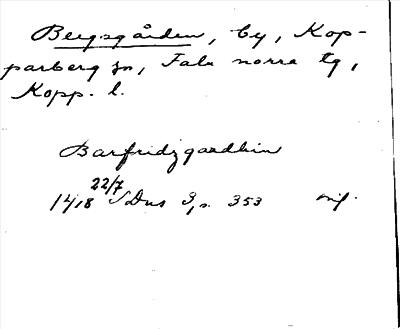 Bergsgården, by, Kop-
parberg sn, Falu norra tg,
Kopp. l.
Barfridzgaardhin
22/7
1418 SDns 3, s. 353 avf.